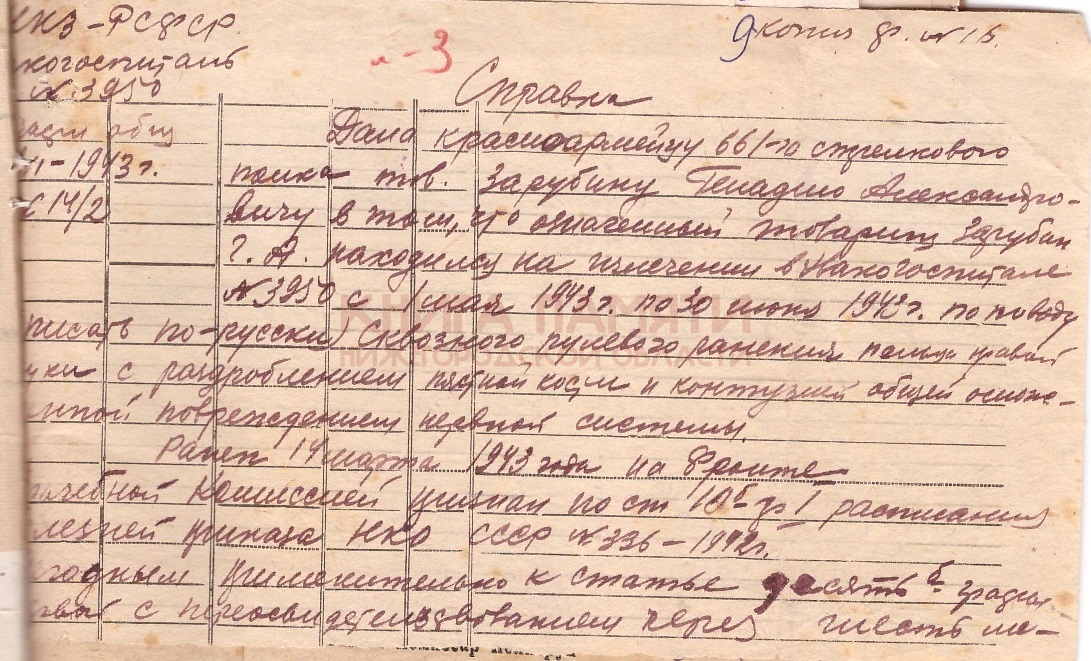 НКЗ-РСФСР.
когоспиталь
№ 3950
общ
-1943 г.
14/2
9 копия ф. № 16.
3
Справка
Дана красноармейцу 661-го стрелкового
полка тов. Зарубину Генадию Александро-
вичу в том, что означенный товарищ Зарубин
Г. А. находился на излечении в Накогоспитале
№ 3950 с 1 мая 1943 г. по 30 июня 1942 г. по поводу
писать по-русски сквозного пулевого ранения пальца правой
уки с раздроблением пястной кости и контузией общей ослож-
енной повреждением нервной системы.
Ранен 14 марта 1943 года на фронте
рачебной комиссией признан по ст 10б гр I расписания
лезней приказа НКО СССР № 336-1942 г.
егодным применительно к статье десять б графы
рвой с переосвидетельствованием через шесть ме-
КНИГА ПАМЯТИ
НИЖЕГОРОДСКОЙ ОБЛАСТИ